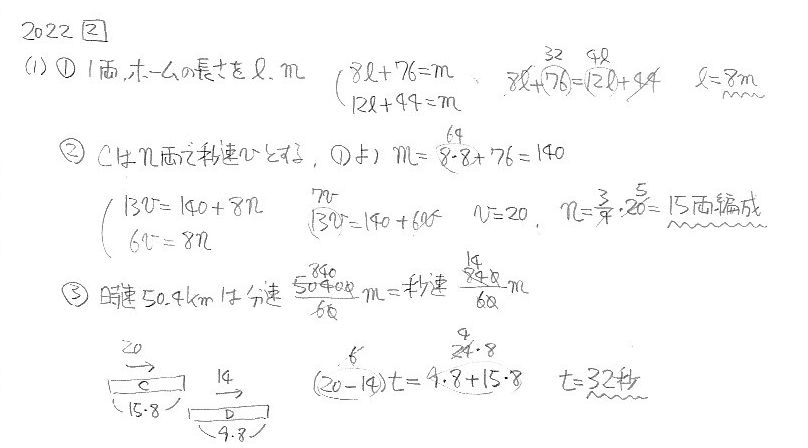 2022 [2]
(1) ① 1両、ホームの長さを l、m 8l+76=m 8l+76=12l+44 32 4l l=8m
12l+44=m
② Cはn両で秒速vとする、①より m=8・8+76=140 64
13v=140+8n 13v=140+6v 7v v=20、n=3/4・20=15両編成 5
6v=8n
③ 時速50.4kmは分速 50400/60 m=秒速 840/60 m 840 14
20 14 (20-14)t=9・8+15・8 6 24・8 4 t=32秒
C 15・8
D 9・8